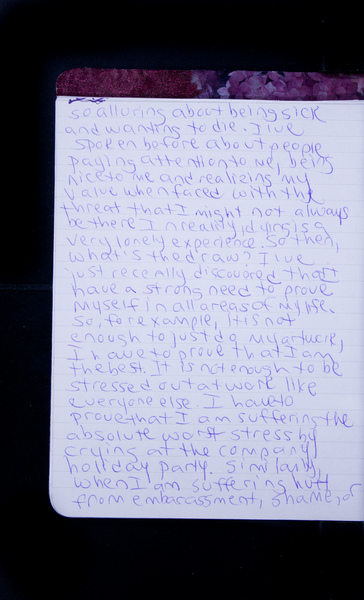 so alluring about being sick
and wanting to die. I've
spoken before about people
paying attention to me, being
nice to me and realizing my
value when faced with the
threat that I might not always
be there. In reality, dying is a
very lonely experience. So then,
what's the draw? I've
just recently discovered that I
have a strong need to prove
myself in all areas of my life.
So, for example, it is not
enough to just do my artwork,
I have to prove that I am
the best. It is not enough to be
stressed out at work like
everyone else. I have to
prove that I am suffering the
absolute worst stress by
crying at the company
holiday party. Similarly,
when I am suffering hurt
from embarassment, shame, or